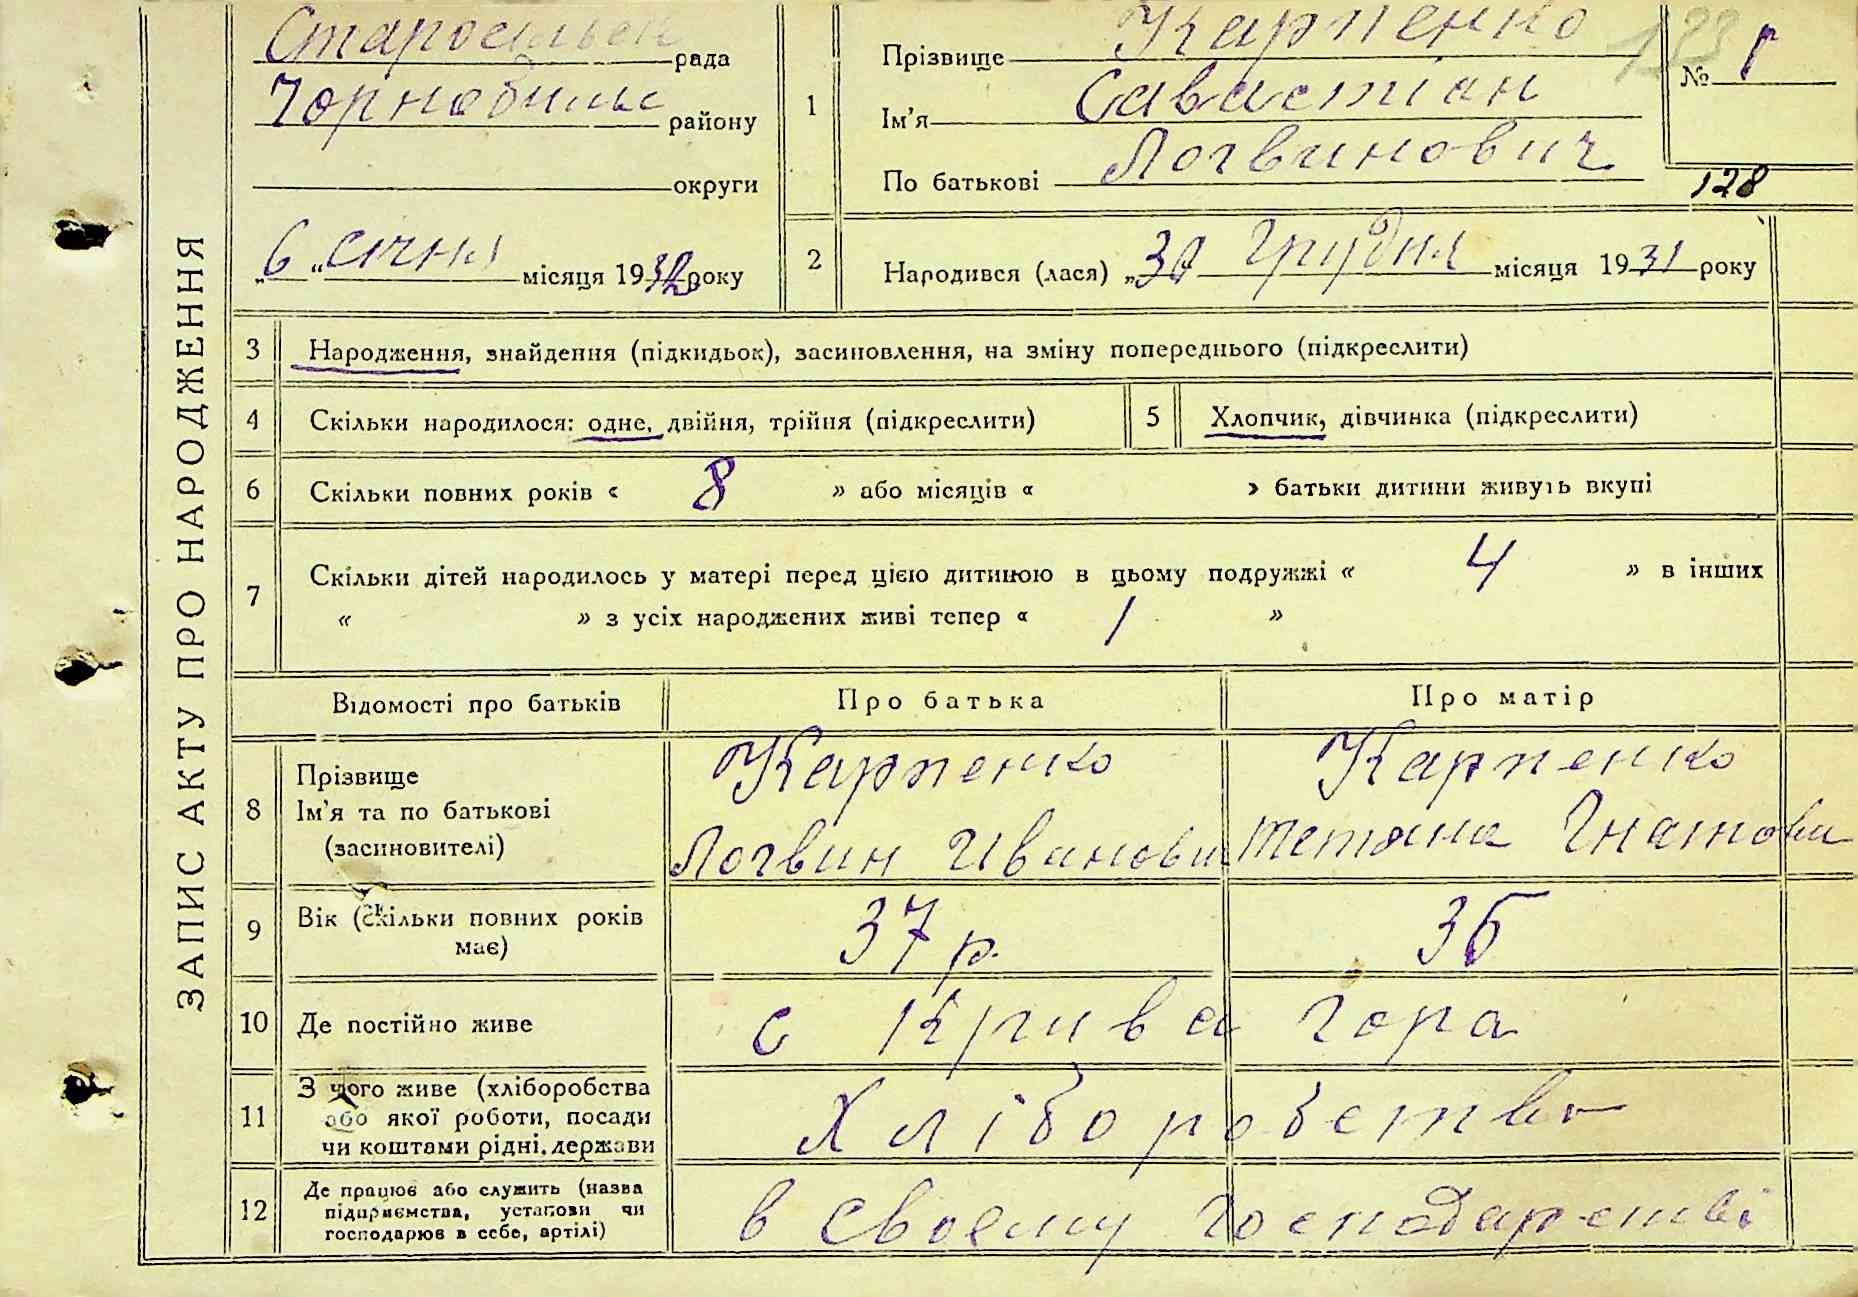 ЗАПИС АКТУ ПРО НАРОДЖЕННЯ
Старосільск рада
Чорнобильс району
округи
„6“ січня місяця 1932 року
1
Прізвище Карпенко
Ім'я Савастіан
По батькові Логвинович
№ 1
123
128
2
Народився (лася) „30 Грудня місяця 1931 року
3 Народження, знайдення (підкидьок), засиновлення, на зміну попереднього (підкреслити)
4 Скільки народилося: одне, двійня, трійня (підкреслити)
5 Хлопчик, дівчинка (підкреслити)
6 Скільки повних років « 8 » або місяців « › батьки дитини живуть вкупі
7 Скільки дітей народилось у матері перед цією дитиною в цьому подружжі « 4 » в інших
« » з усіх народжених живі тепер « 1 »
Відомості про батьків Про батька Про матір
8 Прізвище
Ім'я та по батькові
(засиновителі)
Карпенко
Логвин Иванови
Карпенко
Тетяна Гнатови
9 Вік (скільки повних років
має)
37 р. 36
10 Де постійно живе с Крива Гора
11 З чого живе (хліборобства
або якої роботи, посади
чи коштами рідні, держави
Хліборобство
12 Де працює або служить (назва
підприємства, установи чи
господарює в себе, артілі)
в своєму господарстві